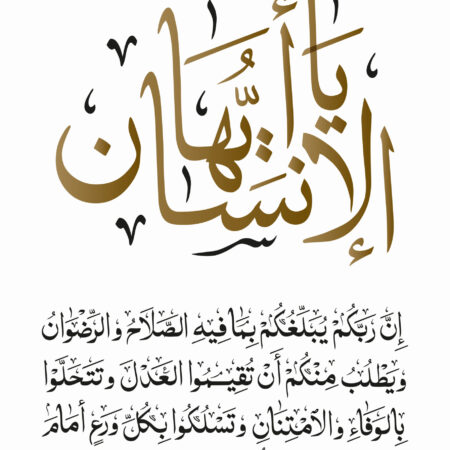 يَا أَيُّهَا
الإِنْسَان
إِنَّ رَبَّكُمْ يُبَلِّغُكُمْ بِمَا فِيهِ الصَّلَاحُ وَالرِّضْوَانُ
وَيَطْلُبُ مِنْكُمْ أَنْ تُقِيمُوا الْعَدْلَ وَتَتَحَلَّوْا
بِالْوَفَاءِ وَالاِمْتِنَانِ وَتَسْلُكُوا بِكُلِّ وَرَعٍ أَمَامَ